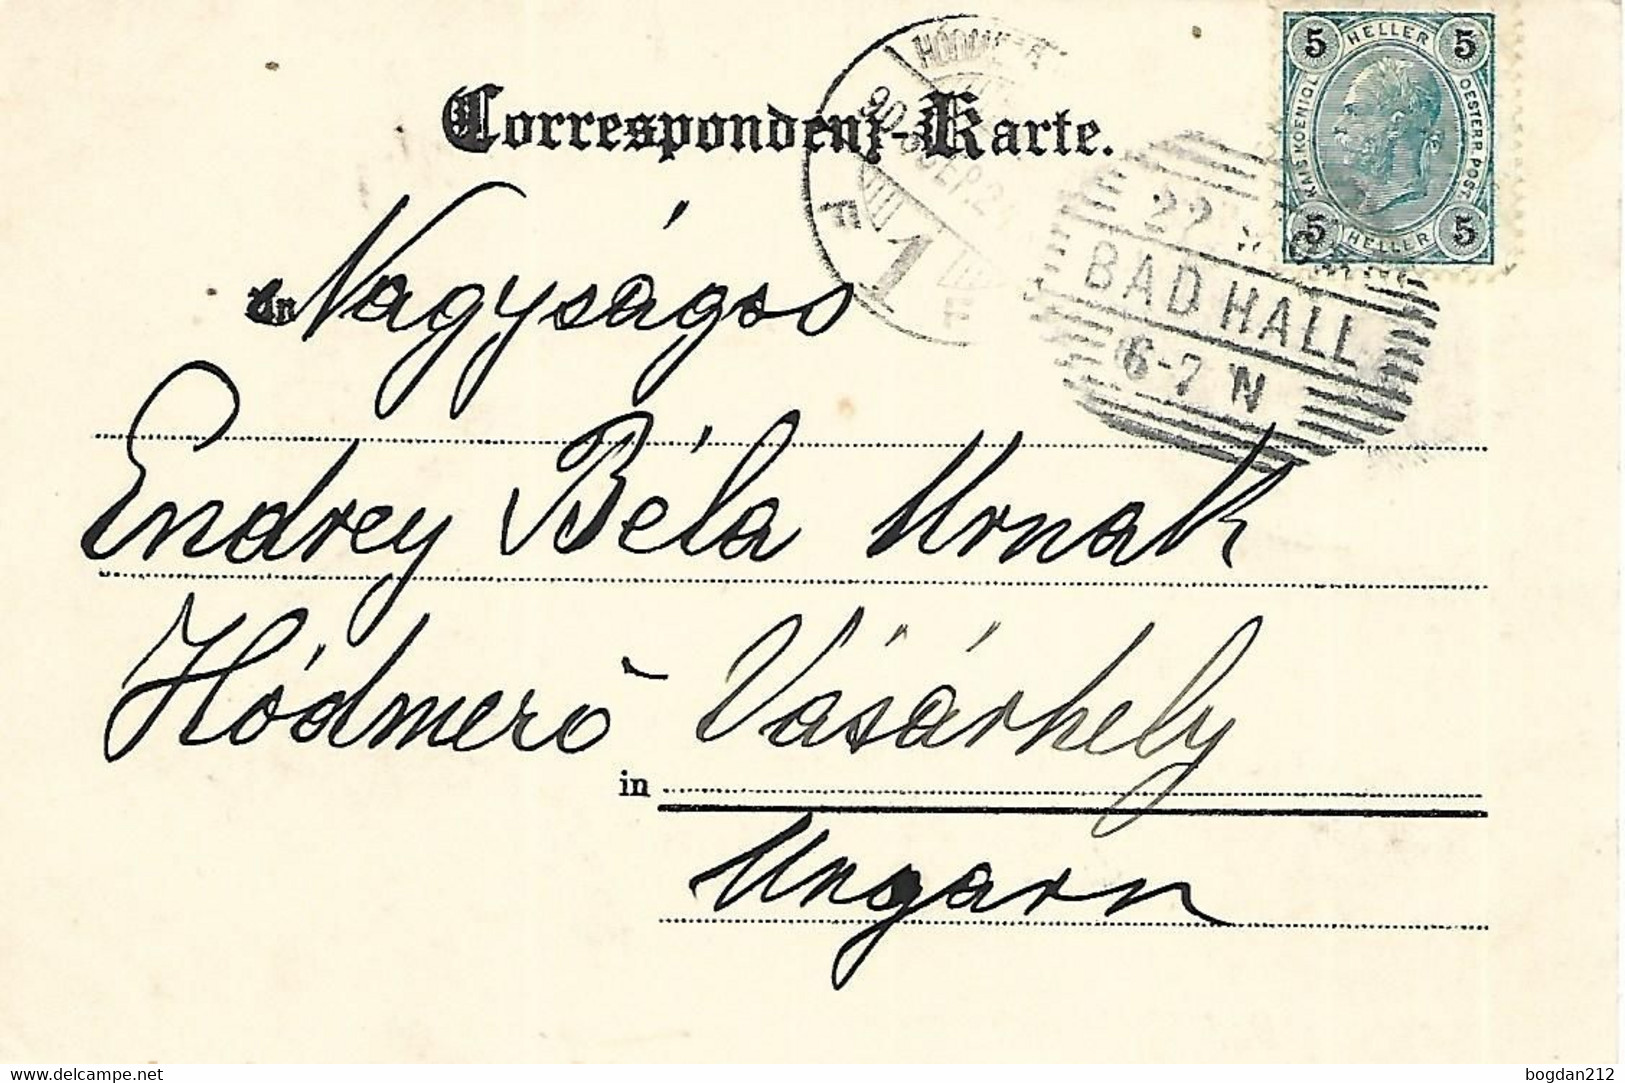 5 HELLER 5
KAIS. KOENIGL.
OESTERR. POST.
5 HELLER 5
Correspondenz-Karte.
F 1 F
22
BAD HALL
6-7 N
An Nagyságos
Endrey Béla Urnak
Hódmező Vásárhely
in
Ungarn
delcampe.net
bogdan212